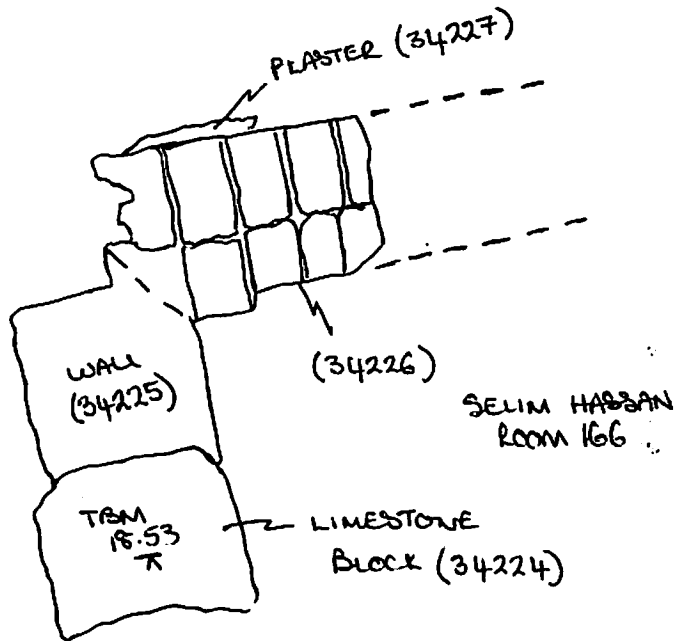 PLASTER (34227)
WALL
(34225)
(34226)
SELIM HASSAN
ROOM 166
TBM
18.53
LIMESTONE
BLOCK (34224)